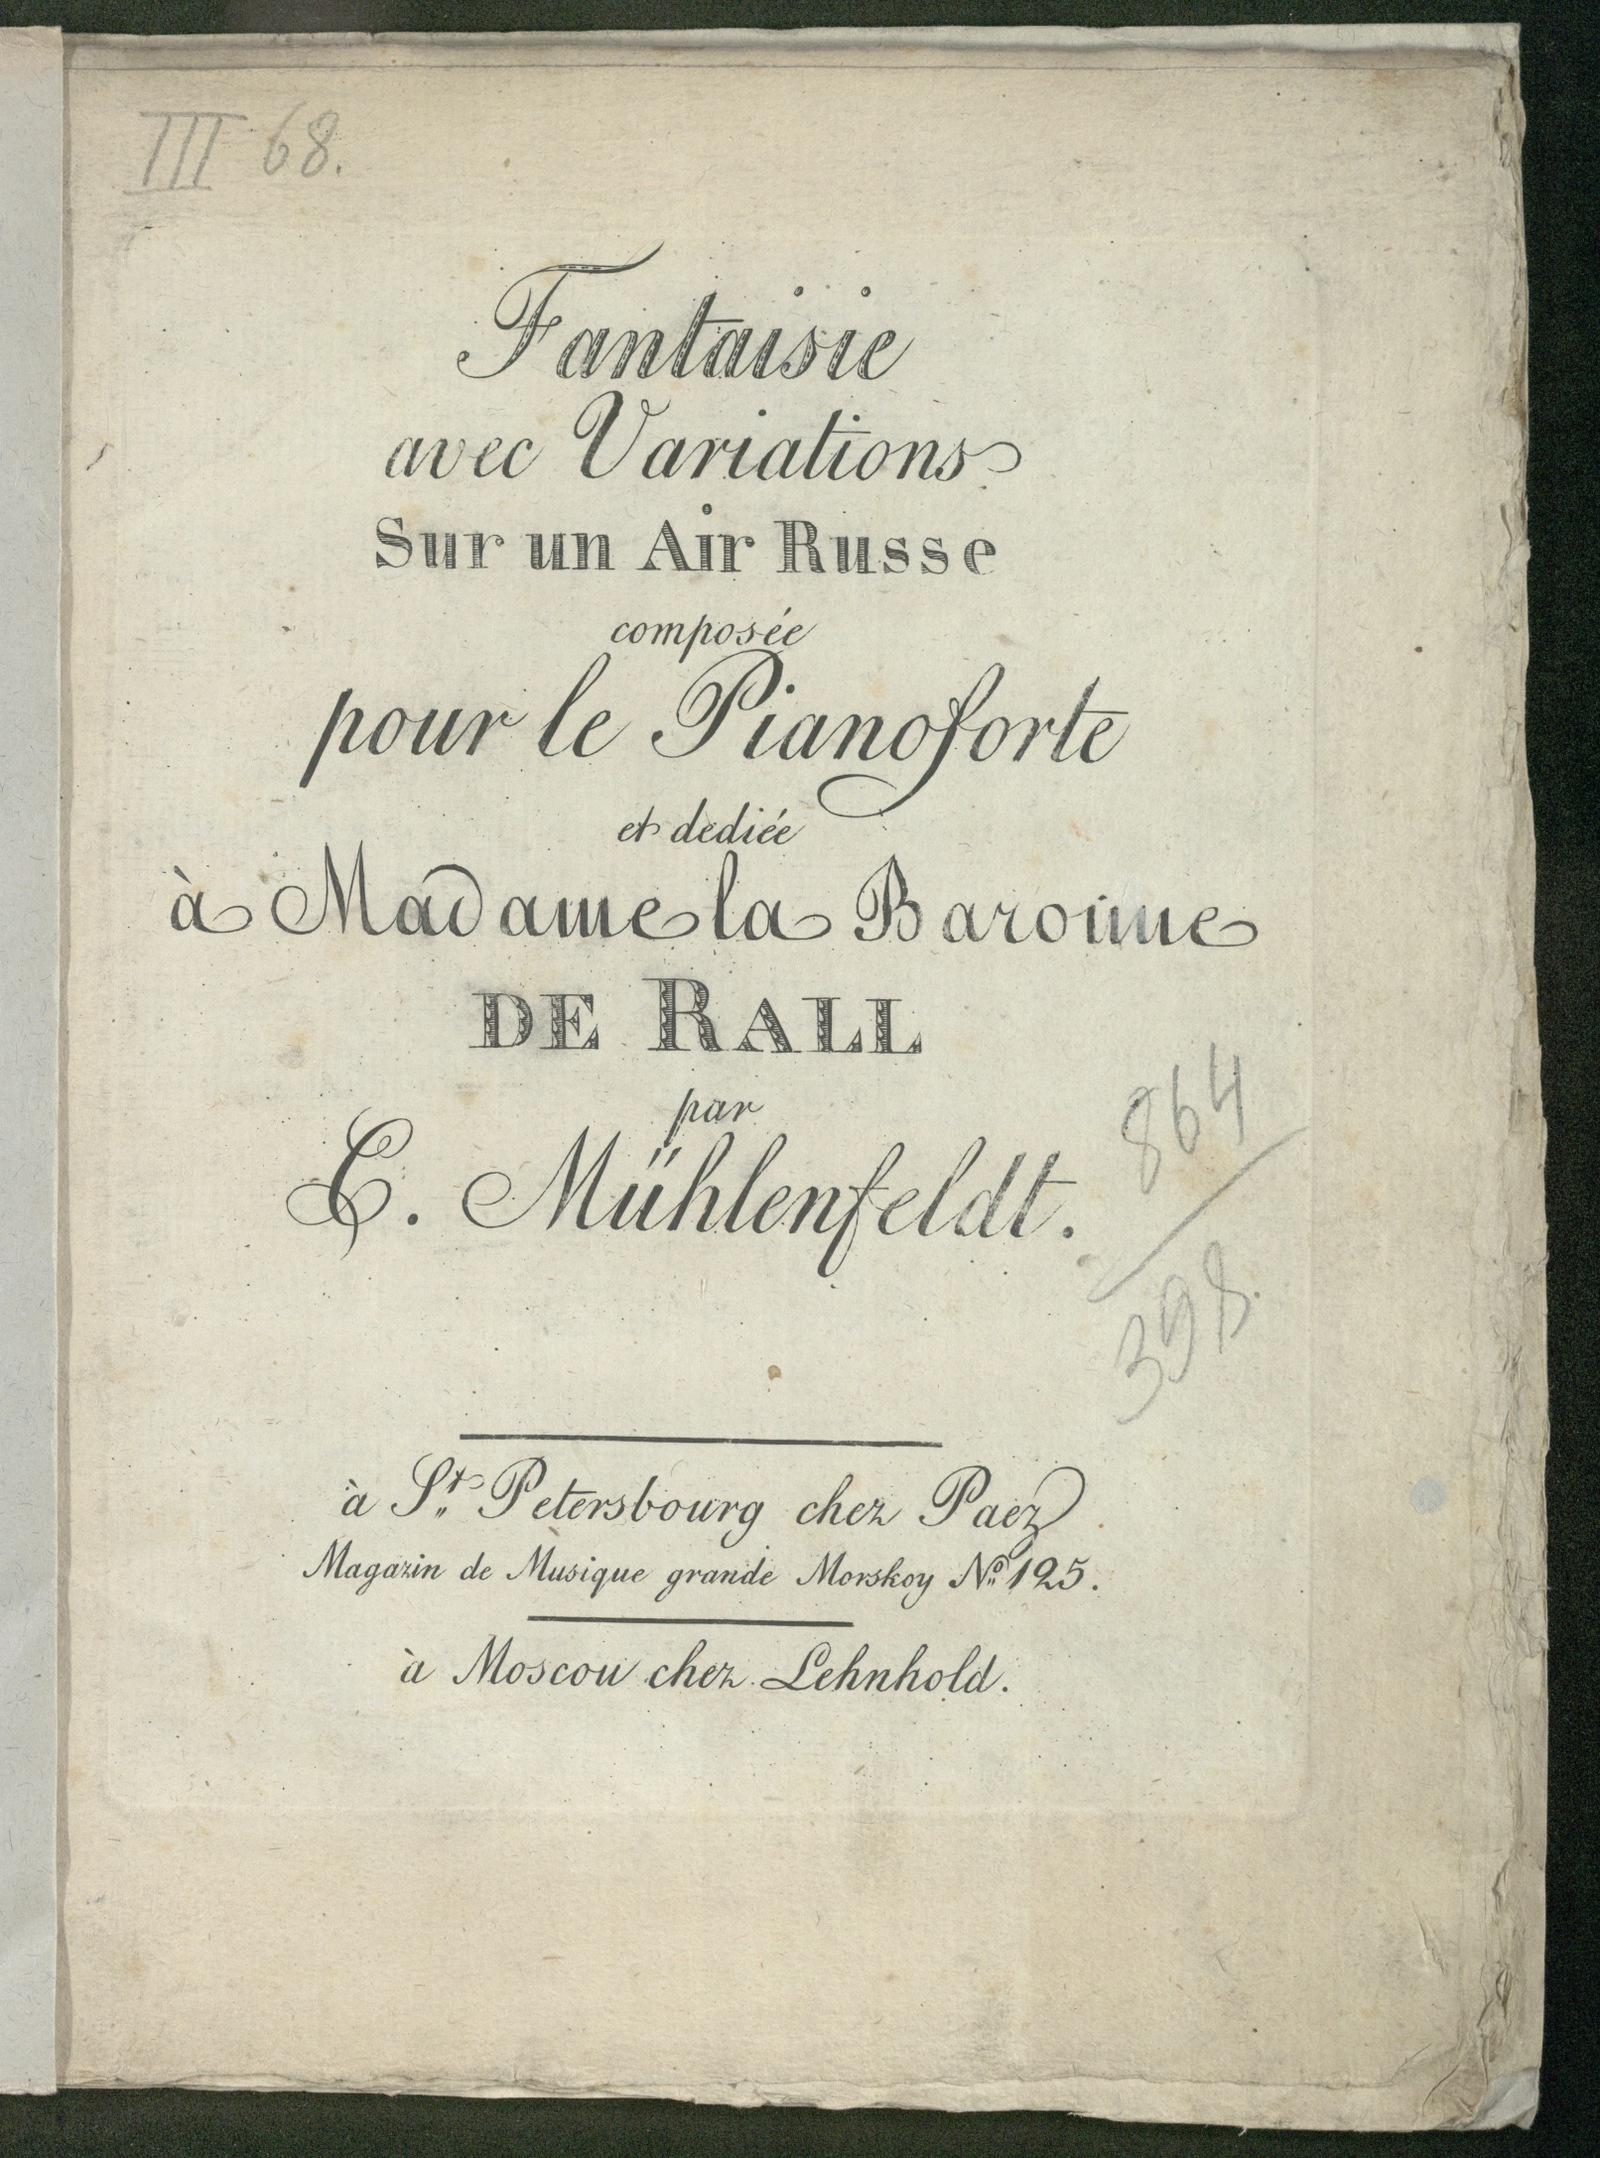 III 68.
Fantaisie
avec Variations
Sur un Air Russe
composée
pour le Pianoforte
et dediée
à Madame la Baronne
DE RALL
par
C. Mühlenfeldt.
864
398.
à St. Petersbourg chez Paez
Magazin de Musique grande Morskoy No. 125.
à Moscou chez Lehnhold.